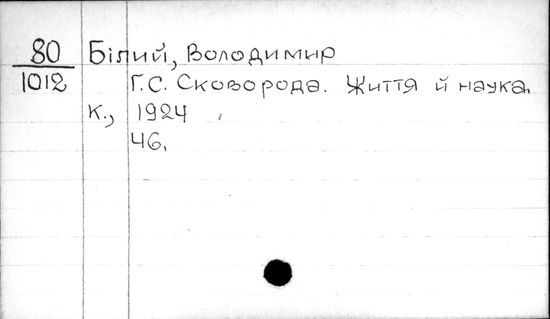 80 Білий, Володимир
1012 Г.С. Сковорода. Життя й наука.
К., 1924
46.